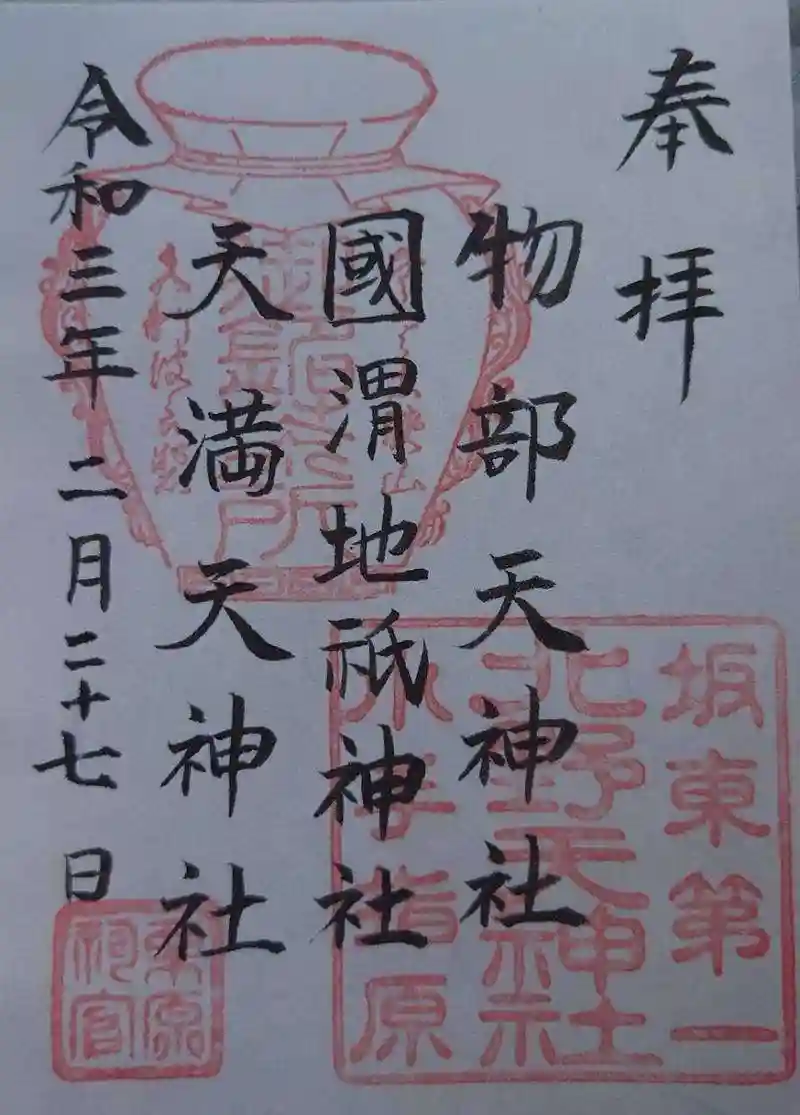 奉拝
物部天神社
國渭地祇神社
天満天神社
令和三年二月二十七日
坂東第一
北野天神社
小手指原